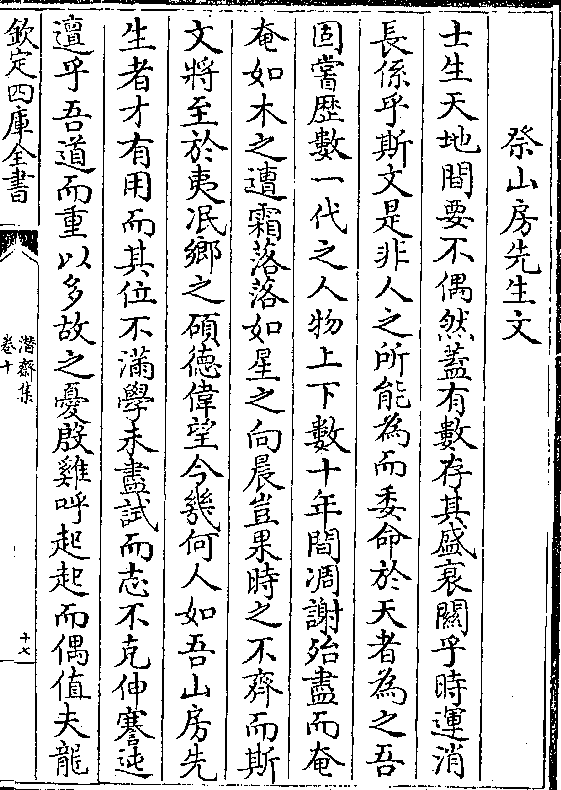 祭山房先生文
士生天地間要不偶然蓋有數存其盛衰關乎時運消
長係乎斯文是非人之所能為而委命於天者為之吾
固嘗歴數一代之人物上下數十年間凋謝殆盡而奄
奄如木之遭霜落落如星之向晨豈果時之不齊而斯
文將至於夷泯鄉之碩德偉望今幾何人如吾山房先
生者才有用而其位不滿學未盡試而志不克伸蹇迍
邅乎吾道而重以多故之憂殷雞呼起起而偶值夫龍
欽定四庫全書
潛齋集
卷十
十七